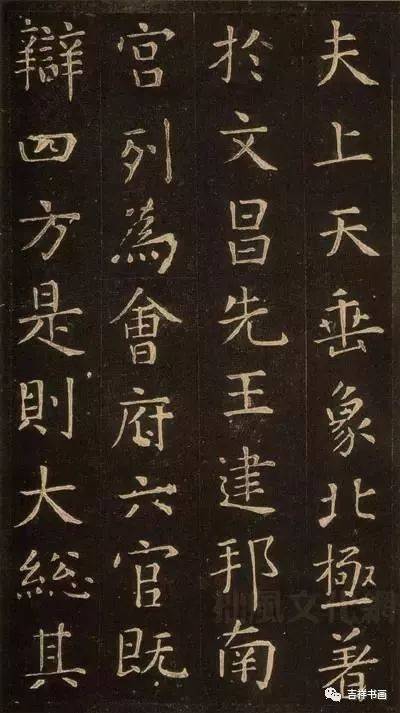 夫上天垂象北極著
於文昌先王建邦南
宮列為會府六官既
辯四方是則大總其
吉祥书画